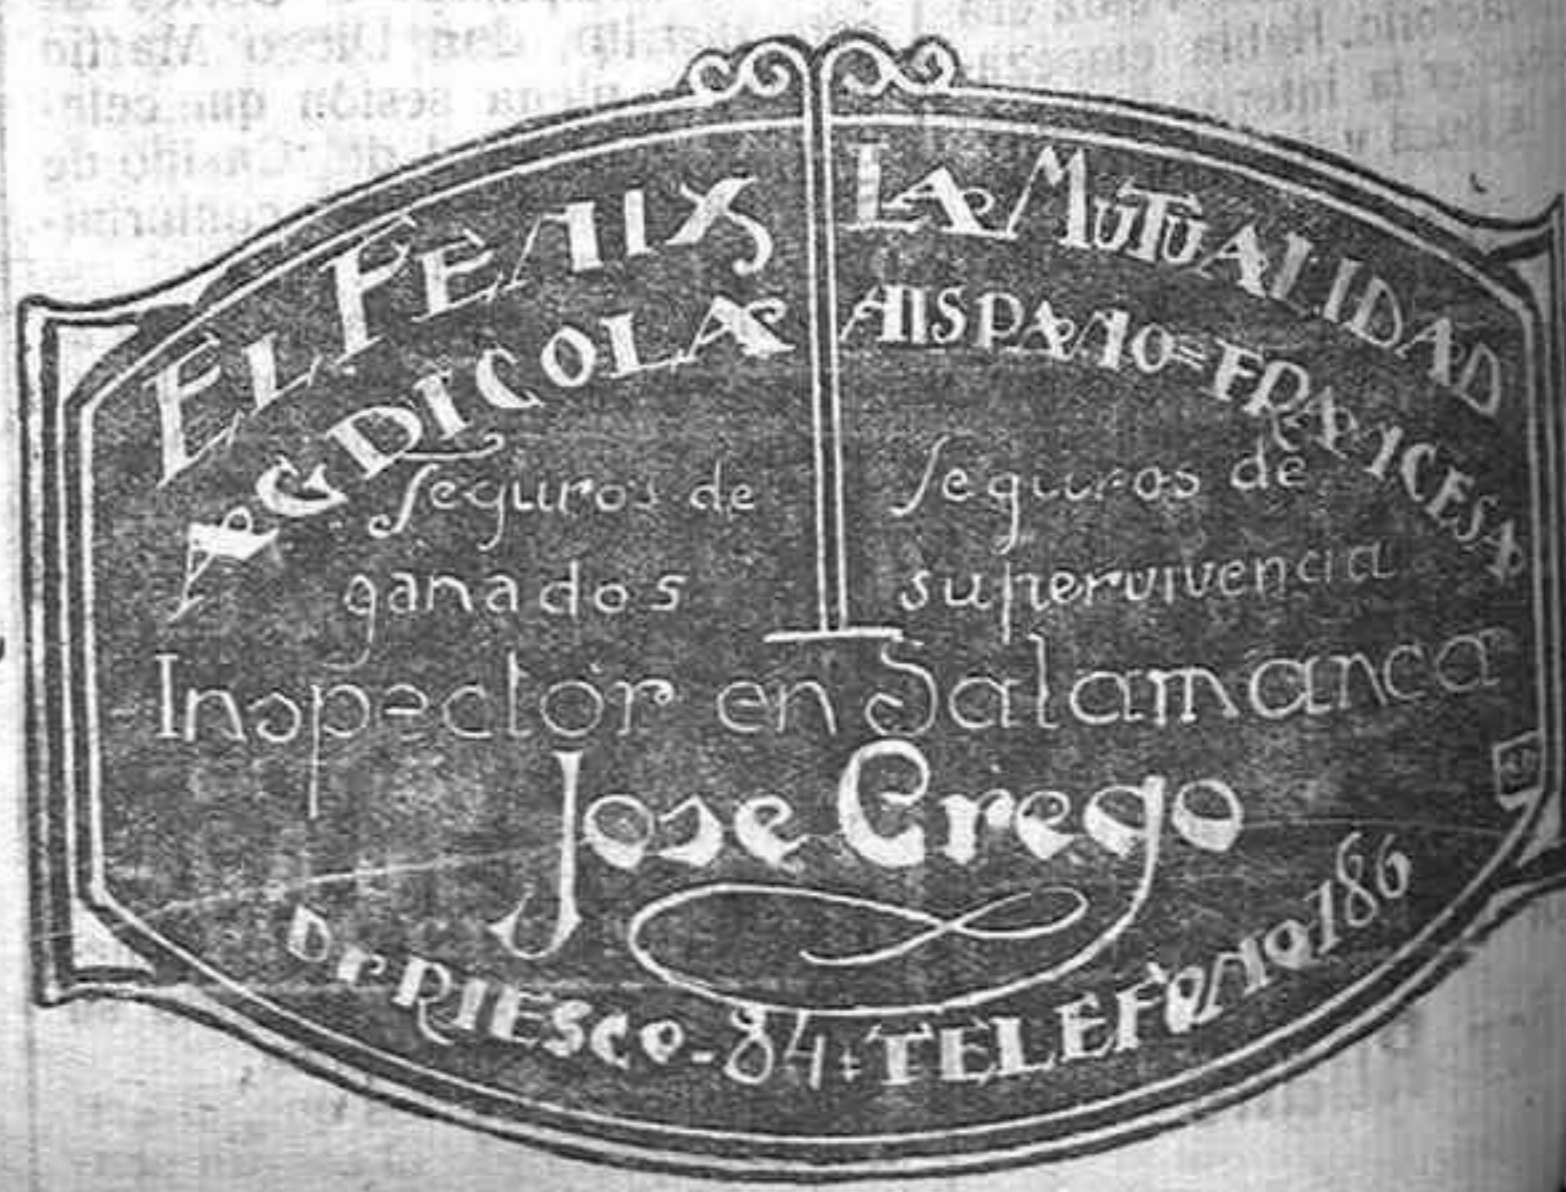 EL FENIX
AGRICOLA
Seguros de
ganados
LA MUTUALIDAD
HISPANO=FRANCESA
Seguros de
supervivencia
Inspector en Salamanca
Jose Crego
Dr RIESCO-84: TELEFONO 186